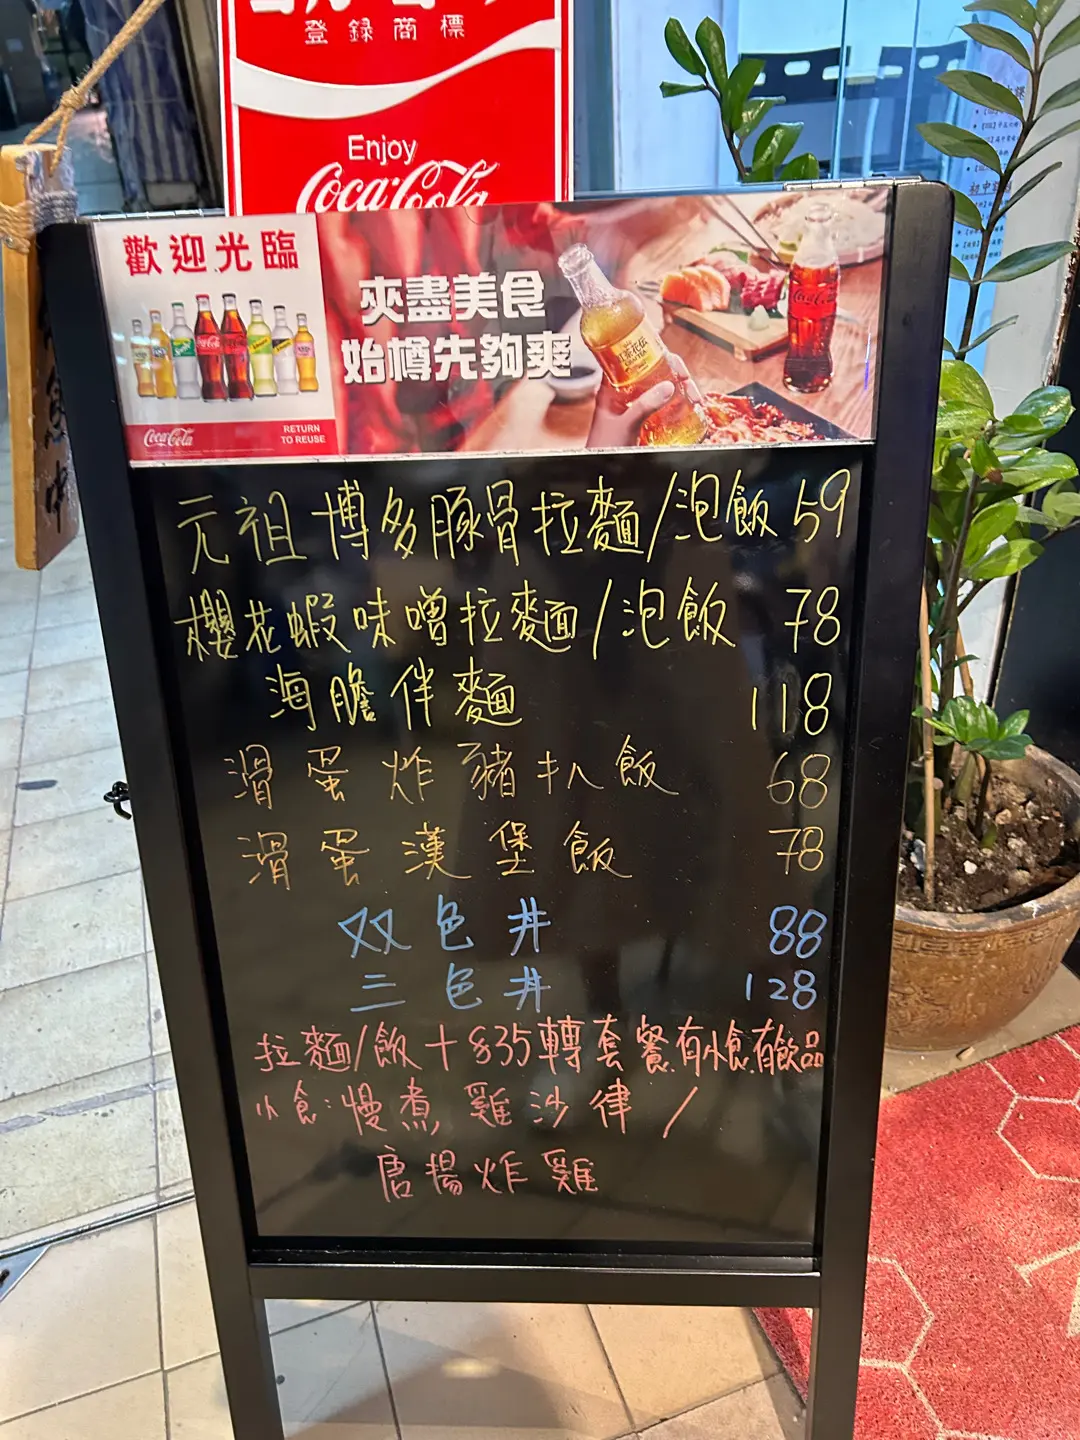 登錄商標
Enjoy
Coca-Cola
歡迎光臨
夾盡美食
始樽先夠爽
Coca-Cola
RETURN
TO REUSE
元祖博多豚骨拉麵/泡飯 59
櫻花蝦味噌拉麵/泡飯 78
海膽伴麵 118
滑蛋炸豬扒飯 68
滑蛋漢堡飯 78
双色丼 88
三色丼 128
拉麵/飯+$35轉套餐有小食有飲品
小食:慢煮雞沙律/
唐揚炸雞